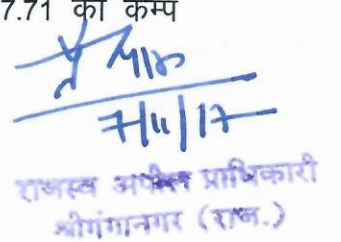 7.71 का कैम्प
7/11/17
राजस्व अपील प्राधिकारी
श्रीगंगानगर (राज.)